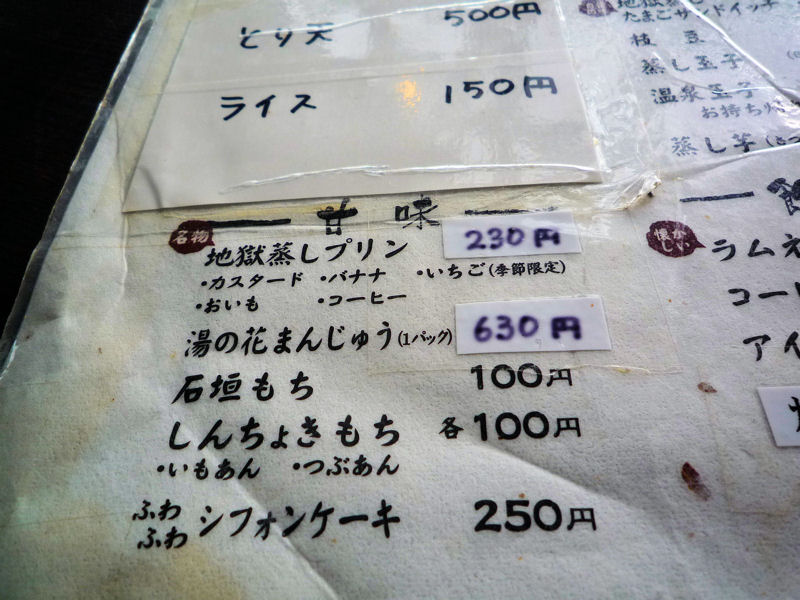 とり天 500円
ライス 150円
甘味
名物 地獄蒸しプリン 230円
・カスタード ・バナナ ・いちご(季節限定)
・おいも ・コーヒー
湯の花まんじゅう(1パック) 630円
石垣もち 100円
しんちょきもち 各100円
・いもあん ・つぶあん
ふわふわ シフォンケーキ 250円
たまごサンドイッチ
枝豆
蒸し玉子
温泉玉子
お持ち
蒸し芋
懐かしい ラムネ
コー
アイ